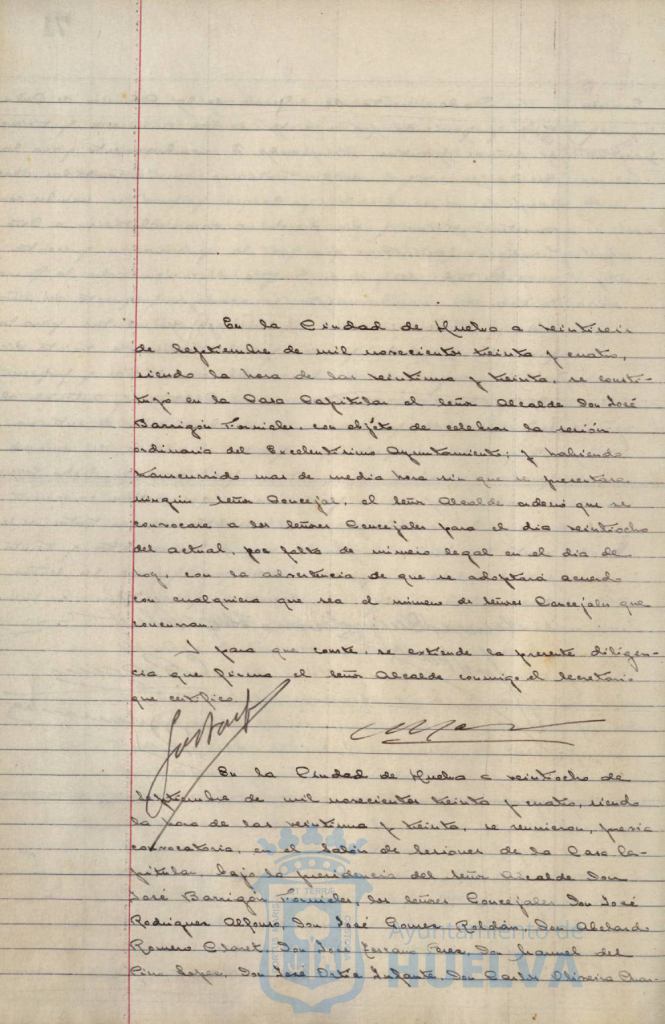 En la Ciudad de Huelva a veintiseis
de Septiembre de mil novecientos treinta y cuatro,
siendo la hora de las veintiuna y treinta, se consti-
tuyó en la Casa Capitular el Señor Alcalde Don José
Barrigón Fornieles, con objeto de celebrar la sesión
ordinaria del Excelentísimo Ayuntamiento; y habiendo
transcurrido mas de media hora sin que se presentara
ningún Señor Concejal, el Señor Alcalde ordenó que se
convocase a los Señores Concejales para el dia veintiocho
del actual, por falta de número legal en el dia de
hoy, con la advertencia de que se adoptará acuerdo
con cualquiera que sea el número de Señores Concejales que
concurran.
Y para que conste, se extiende la presente diligen-
cia que firma el Señor Alcalde conmigo el Secretario
que certifico.
En la Ciudad de Huelva a veintiocho de
Septiembre de mil novecientos treinta y cuatro, siendo
la hora de las veintiuna y treinta, se reunieron, previa
convocatoria, en el Salón de Sesiones de la Casa Ca-
pitular, bajo la presidencia del Señor Alcalde Don
José Barrigón Fornieles, los Señores Concejales Don José
Rodríguez Alfonso, Don José Gomez Roldán, Don Abelardo
Romero Claret, Don José Serrano Perez, Don Manuel del
Pino Lopez, Don José Ortiz Infante, Don Carlos Oliveira
Ayuntamiento de
HUELVA